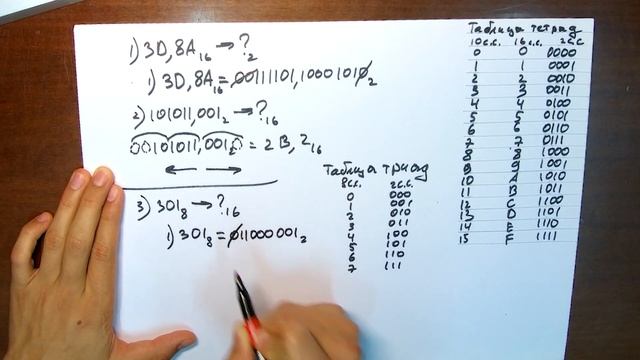 1) 3D,8A₁₆ → ?₂
1) 3D,8A₁₆ = 00111101,10001010₂
2) 101011,001₂ → ?₁₆
00101011,0010 = 2B,2₁₆
3) 301₈ → ?₁₆
1) 301₈ = 011000001₂
Таблица триад
8с.с. 2с.с.
0 000
1 001
2 010
3 011
4 100
5 101
6 110
7 111
Таблица тетрад
10с.с. 16с.с. 2с.с
0 0 0000
1 1 0001
2 2 0010
3 3 0011
4 4 0100
5 5 0101
6 6 0110
7 7 0111
8 8 1000
9 9 1001
10 A 1010
11 B 1011
12 C 1100
13 D 1101
14 E 1110
15 F 1111